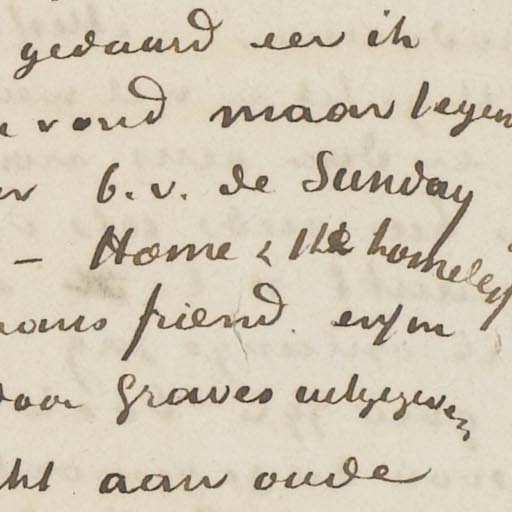 gedaard eer ik
vond maar tegen
b.v. de Sunday
– Home & the homeley
mans friend enfin
door Graves uitgegeven
cht aan oude